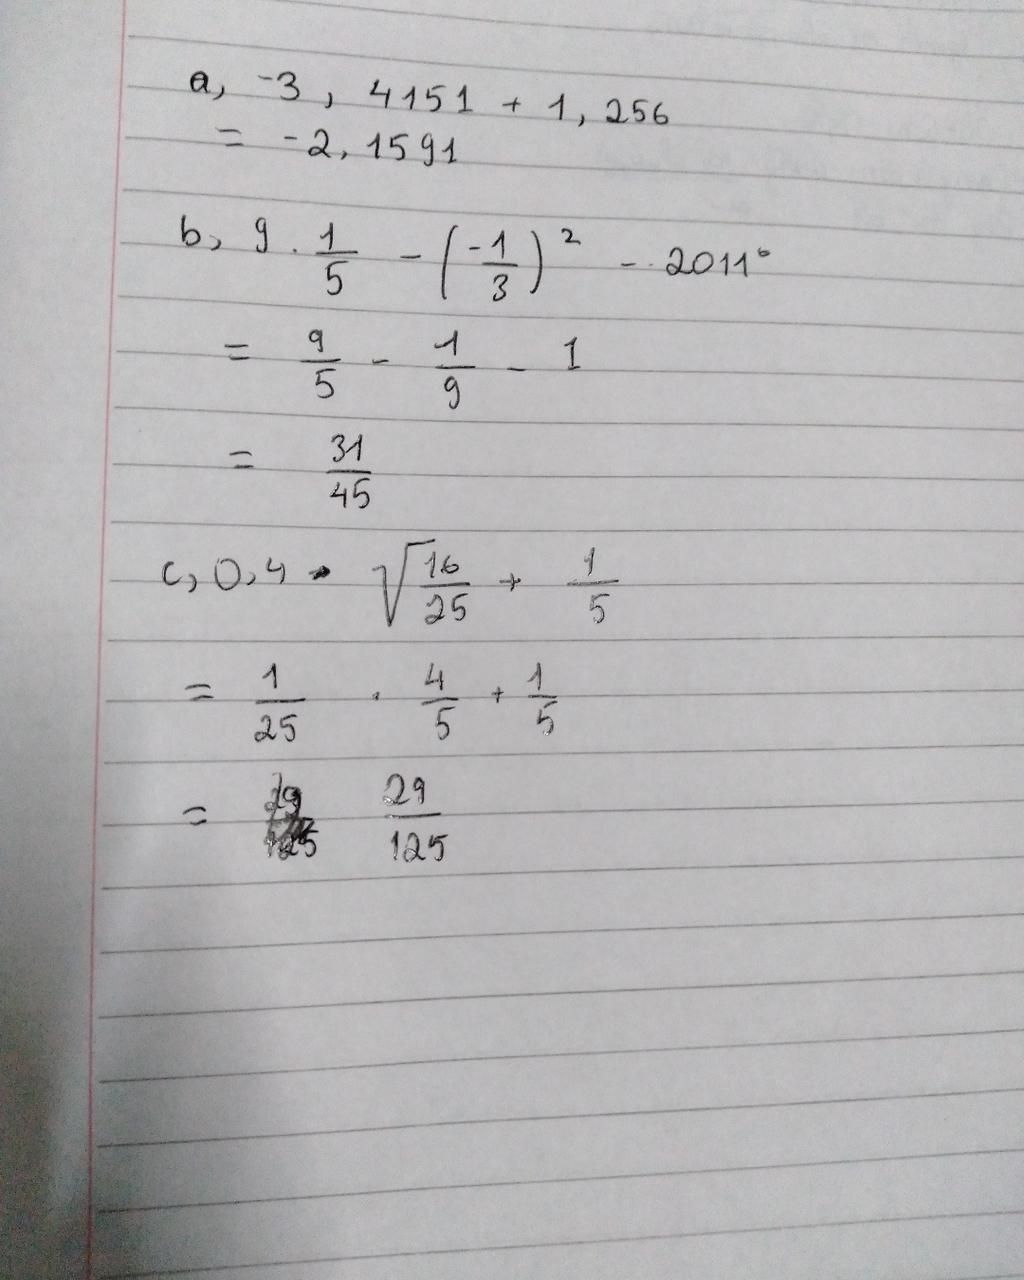 a, -3, 4151 + 1, 256
= -2, 1591
b, 9 . 1/5 - (-1/3)² - 2011⁰
= 9/5 - 1/9 - 1
= 31/45
c, 0,4 . √16/25 + 1/5
= 1/25 . 4/5 + 1/5
= 29/125